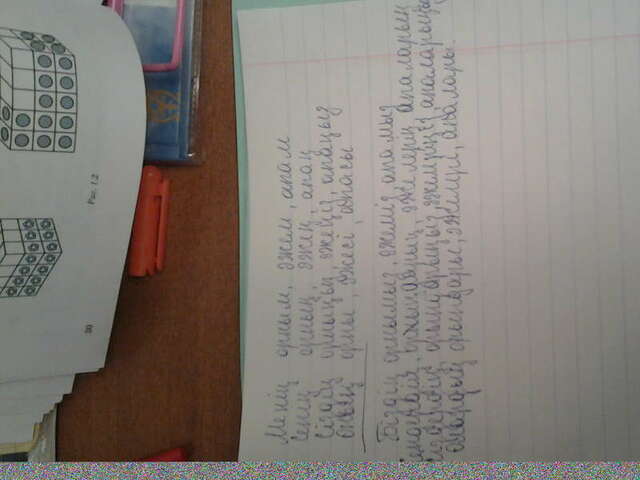 30 Рис. 1.2
Менің орным, әжем, апам
Сенің орның, әжең, апаң
Сіздің орныңыз, әжеңіз, апаңыз
Оның орны, әжесі, апасы
Біздің орнымыз, әжеміз, апамыз
орындарың, әжелерің, апаларың
орындарыңыз, әжелеріңіз, апаларыңыз
олардың орындары, әжелері, апалары.